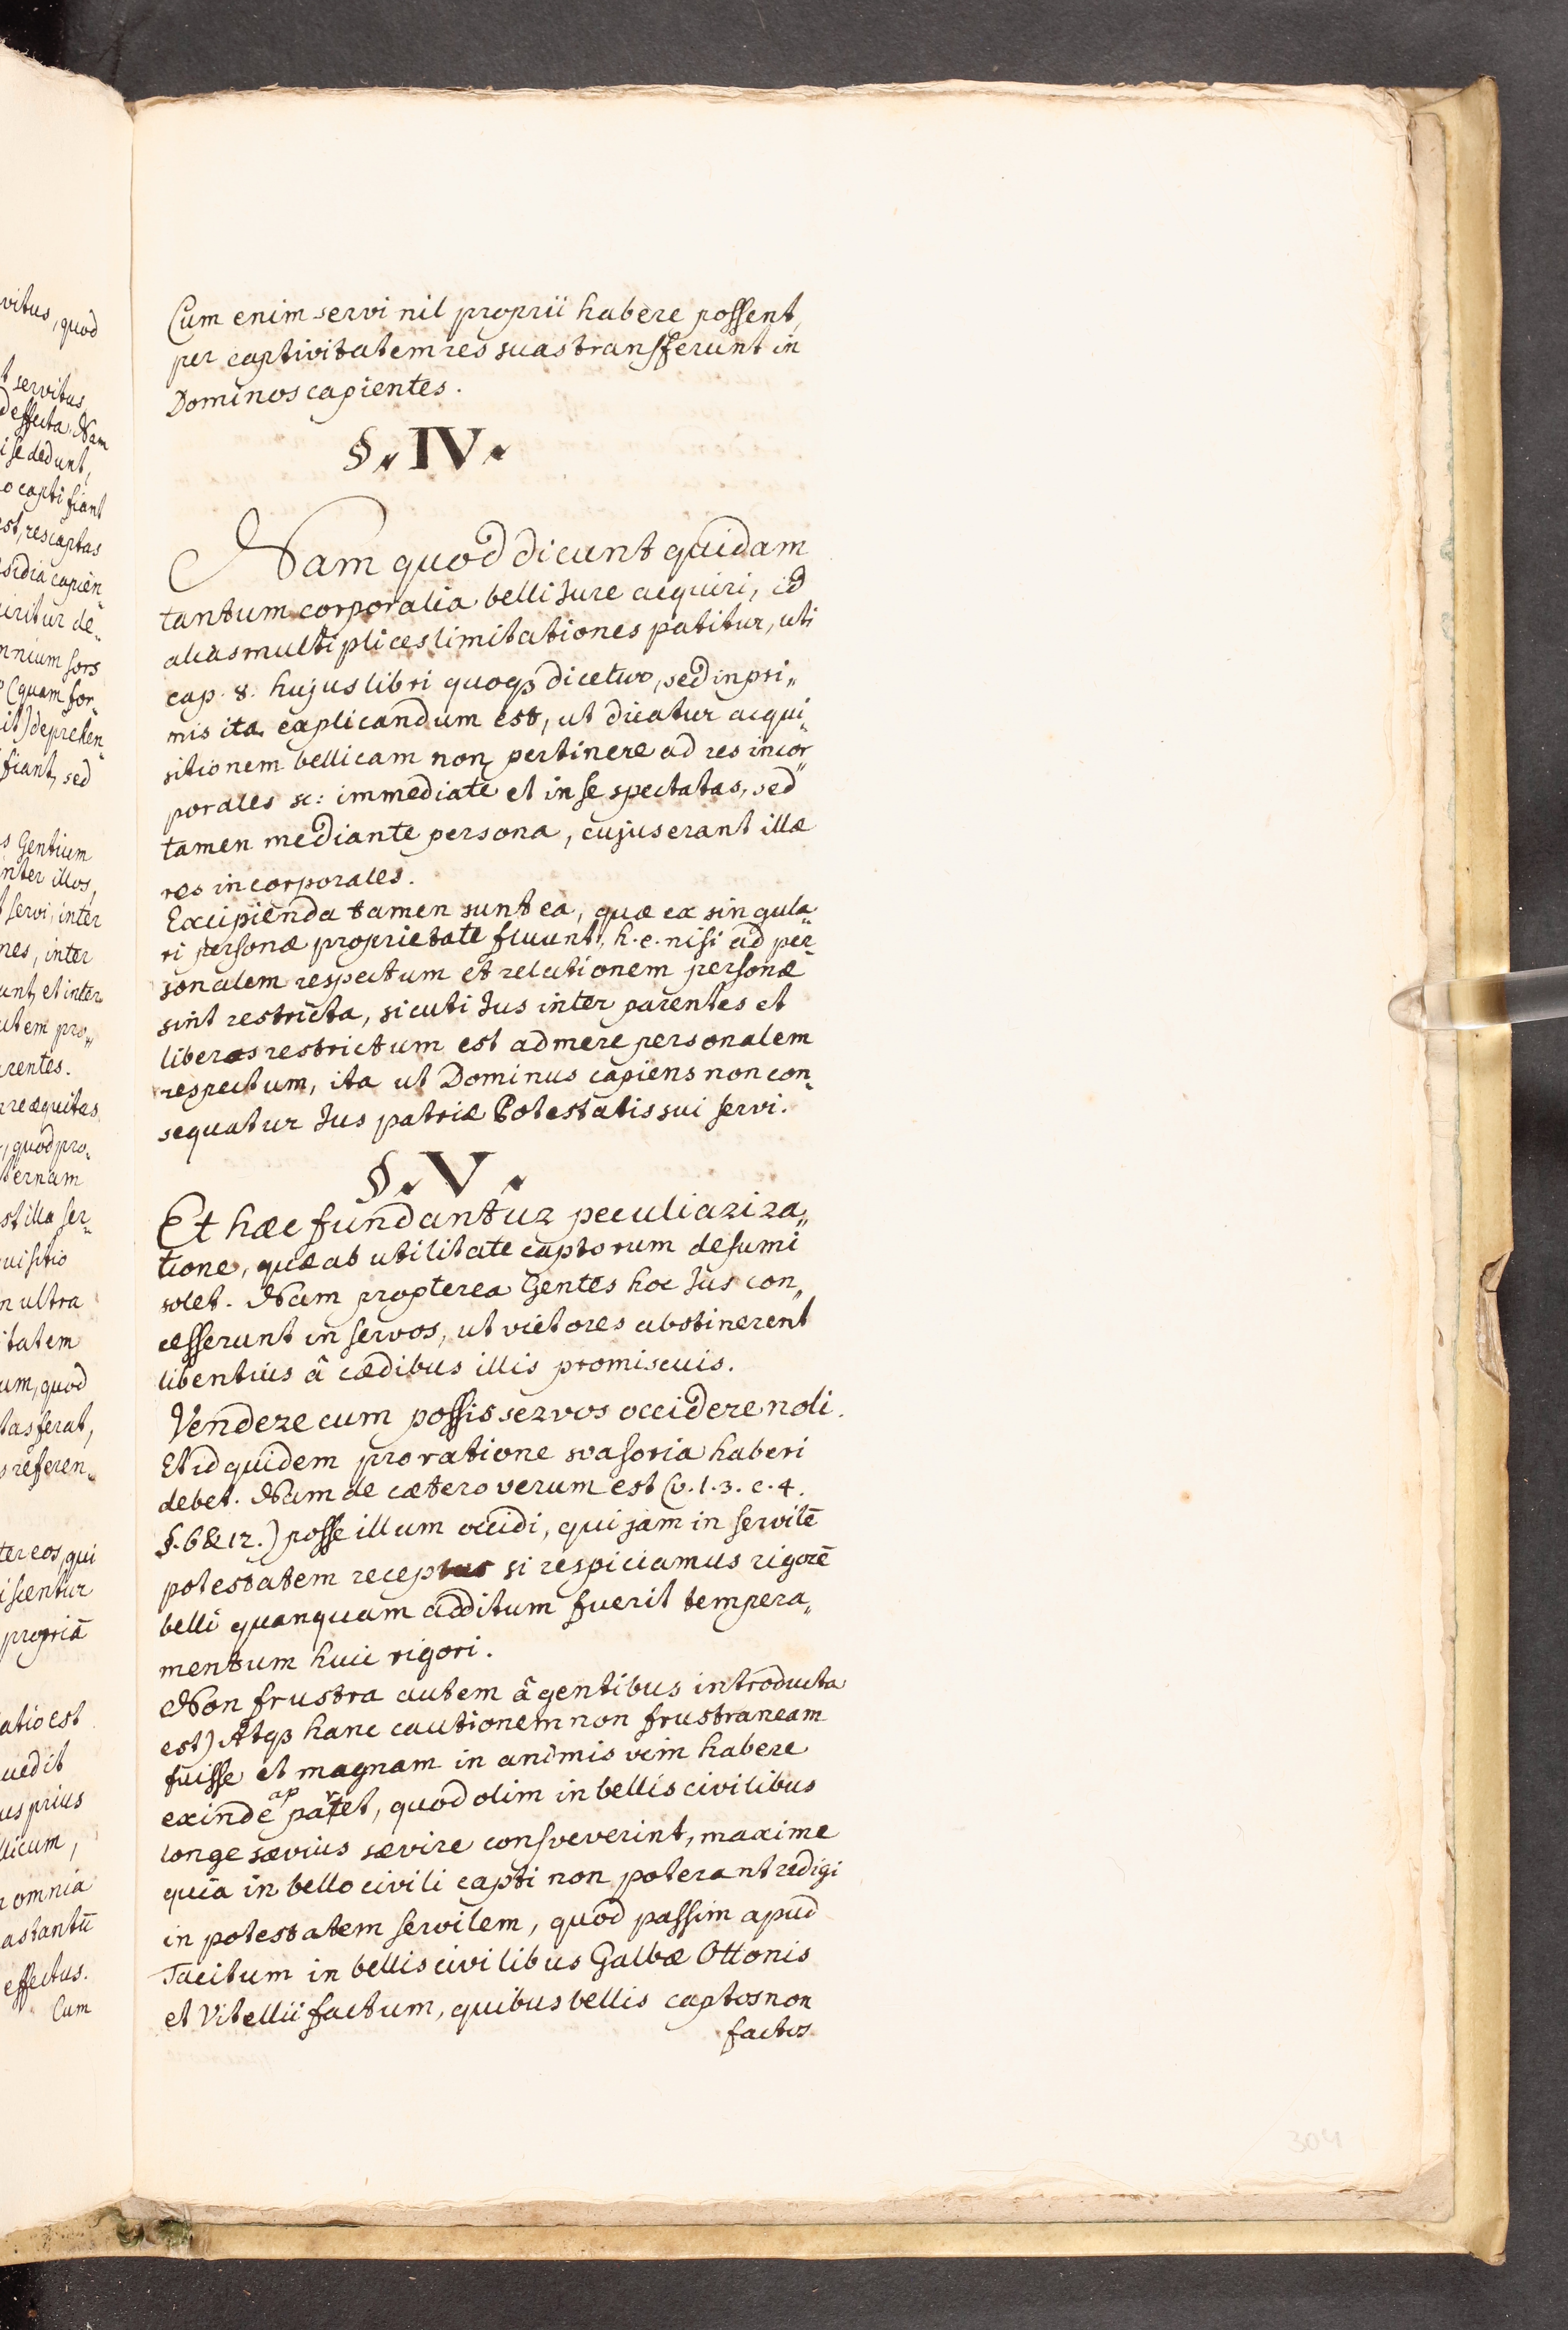 Cum enim servi nil proprii habere possent,
per captivitatem res suas transferunt in
Dominos capientes.
§. IV.
Nam quod dicunt quidam
tantum corporalia belli Jure acquiri, id
alias multiplices limitationes patitur, uti
cap. 8. hujus libri quoqꝫ dicetur, sed inpri„
mis ita explicandum est, ut dicatur acqui„
sitionem bellicam non pertinere ad res incor„
porales sc: immediate et in se spectatas, sed
tamen mediante persona, cujus erant illæ
res incorporales.
Excipienda tamen sunt ea, quæ ex singula„
ri personæ proprietate fluunt, h. e. nisi ad per„
sonalem respectum et relationem personæ
sint restricta, sicuti Jus inter parentes et
liberos restrictum est ad mere personalem
respectum, ita ut Dominus capiens non con„
sequatur Jus patriæ Potestatis sui servi.
§. V.
Et hæc fundantur peculiari ra„
tione, quæ ab utilitate captorum desumi
solet. Nam propterea Gentes hoc Jus con„
cesserunt in servos, ut victores abstinerent
libentius â cædibus illis promiscuis.
Vendere cum possis servos occidere noli.
Et id quidem pro ratione svasoria haberi
debet. Nam de cætero verum est (v. l. 3. c. 4.
§. 6 & 12.) posse illum occidi, qui jam in servilē
potestatem receptus si respiciamus rigorē
belli quanquam additum fuerit tempera„
mentum huic rigori.
Non frustra autem â gentibus introducta
est) Atqꝫ hanc cautionem non frustraneam
fuisse et magnam in animis vim habere
exinde apparet, quod olim in bellis civilibus
longe sævius sævire consveverint, maxime
quia in bello civili capti non poterant redigi
in potestatem servilem, quod passim apud
Tacitum in bellis civilibus Galbæ Ottonis
et Vitellii factum, quibus bellis captos non
factos
304